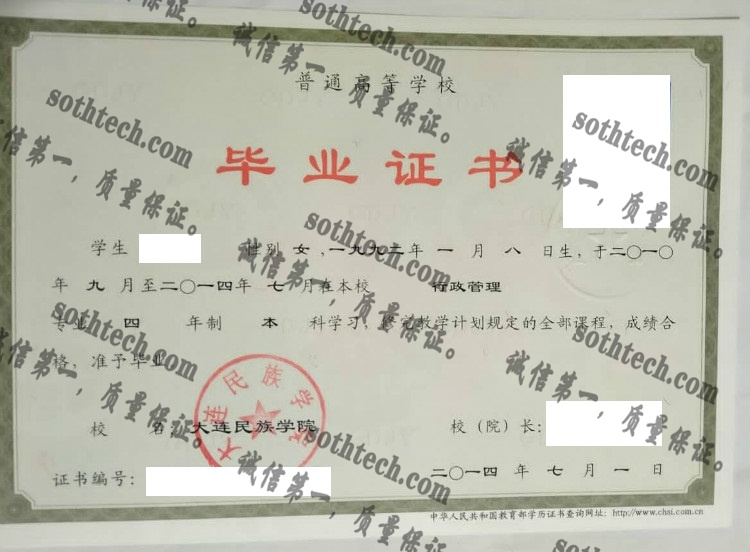 普通高等学校
毕业证书
学生 性别 女 ,一九九二年 一 月 八 日生，于二〇一〇
年 九 月至二〇一四年 七 月在本校 行政管理
专业 四 年制 本 科学习，修完教学计划规定的全部课程，成绩合
格，准予毕业
校 名：大连民族学院 校（院）长：
证书编号： 二〇一四 年 七 月 一 日
中华人民共和国教育部学历证书查询网址：http://www.chsi.com.cn
大连民族学院
sothtech.com
诚信第一，质量保证。
sothtech.com
诚信第一，质量保证。
sothtech.com
诚信第一，质量保证。
sothtech.com
诚信第一，质量保证。
sothtech.com
诚信第一，质量保证。
sothtech.com
诚信第一，质量保证。
sothtech.com
诚信第一，质量保证。
sothtech.com
诚信第一，质量保证。